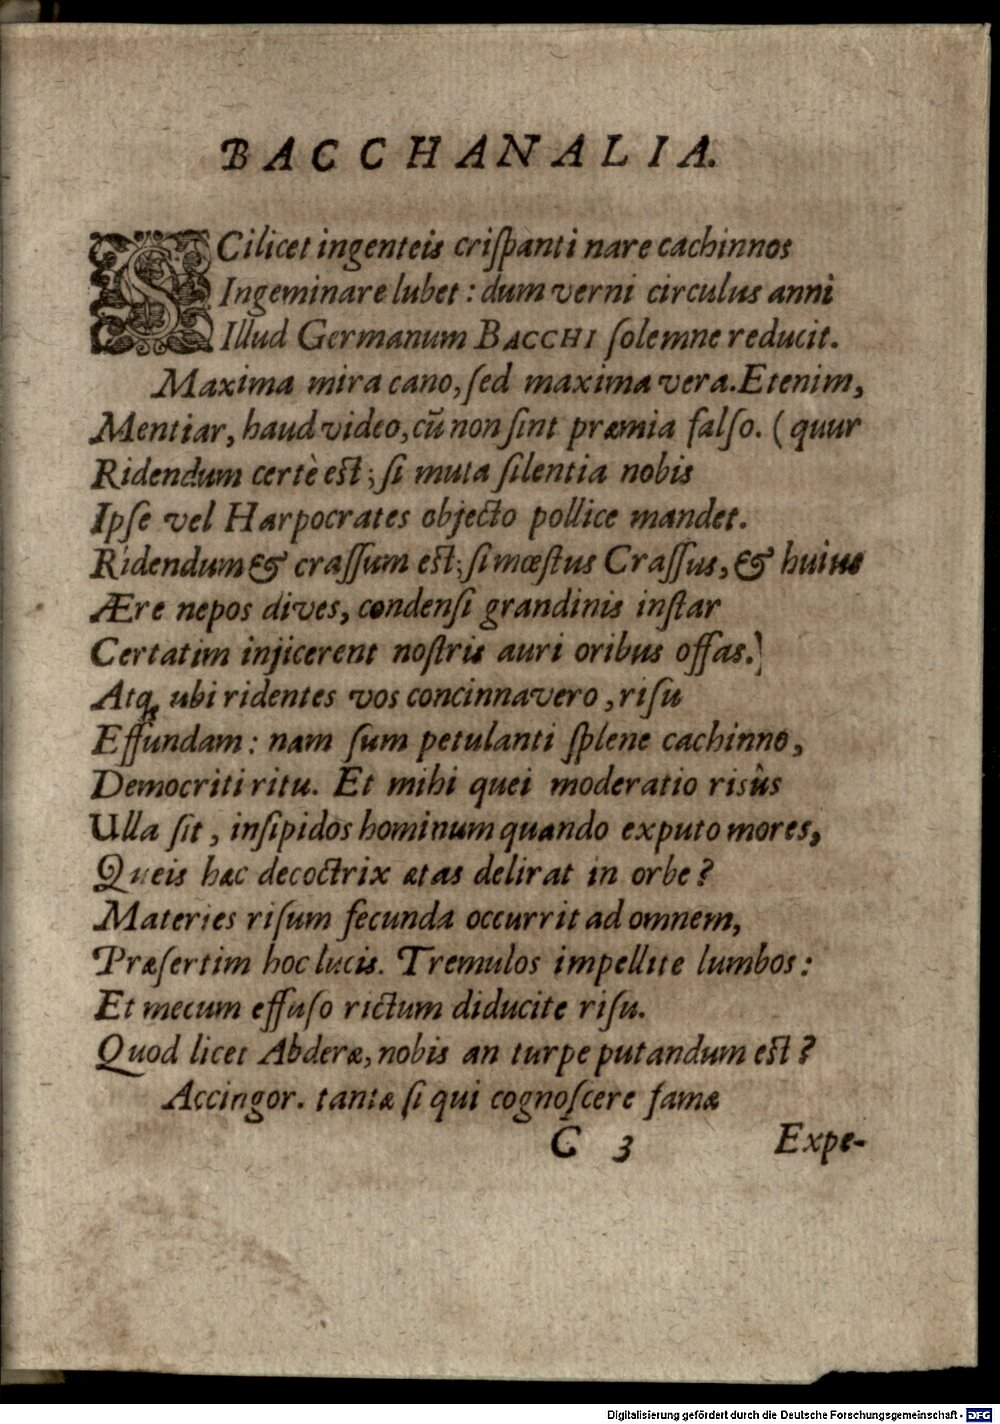 BACCHANALIA.
SCilicet ingenteis criſpanti nare cachinnos
Ingeminare lubet: dum verni circulus anni
Illud Germanum BACCHI ſolemne reducit.
Maxima mira cano, ſed maxima vera. Etenim,
Mentiar, haud video, cū non ſint præmia falſo. (quur
Ridendum certè est; ſi muta ſilentia nobis
Ipſe vel Harpocrates objecto pollice mandet.
Ridendum & craſſum est; ſi mœſtus Craſſus, & huius
Ære nepos dives, condenſi grandinis inſtar
Certatim injicerent noſtris auri oribus offas.)
Atq; ubi ridentes vos concinnavero, riſu
Effundam: nam ſum petulanti ſplene cachinno,
Democriti ritu. Et mihi quei moderatio risûs
Ulla ſit, inſipidos hominum quando exputo mores,
Queis hæc decoctrix ætas delirat in orbe?
Materies riſum fecunda occurrit ad omnem,
Præſertim hoc lucis. Tremulos impellite lumbos:
Et mecum effuſo rictum diducite riſu.
Quod licet Abderæ, nobis an turpe putandum est?
Accingor. tantæ ſi qui cognoſcere famæ
C 3 Expe-
Digitalisierung gefördert durch die Deutsche Forschungsgemeinschaft - DFG